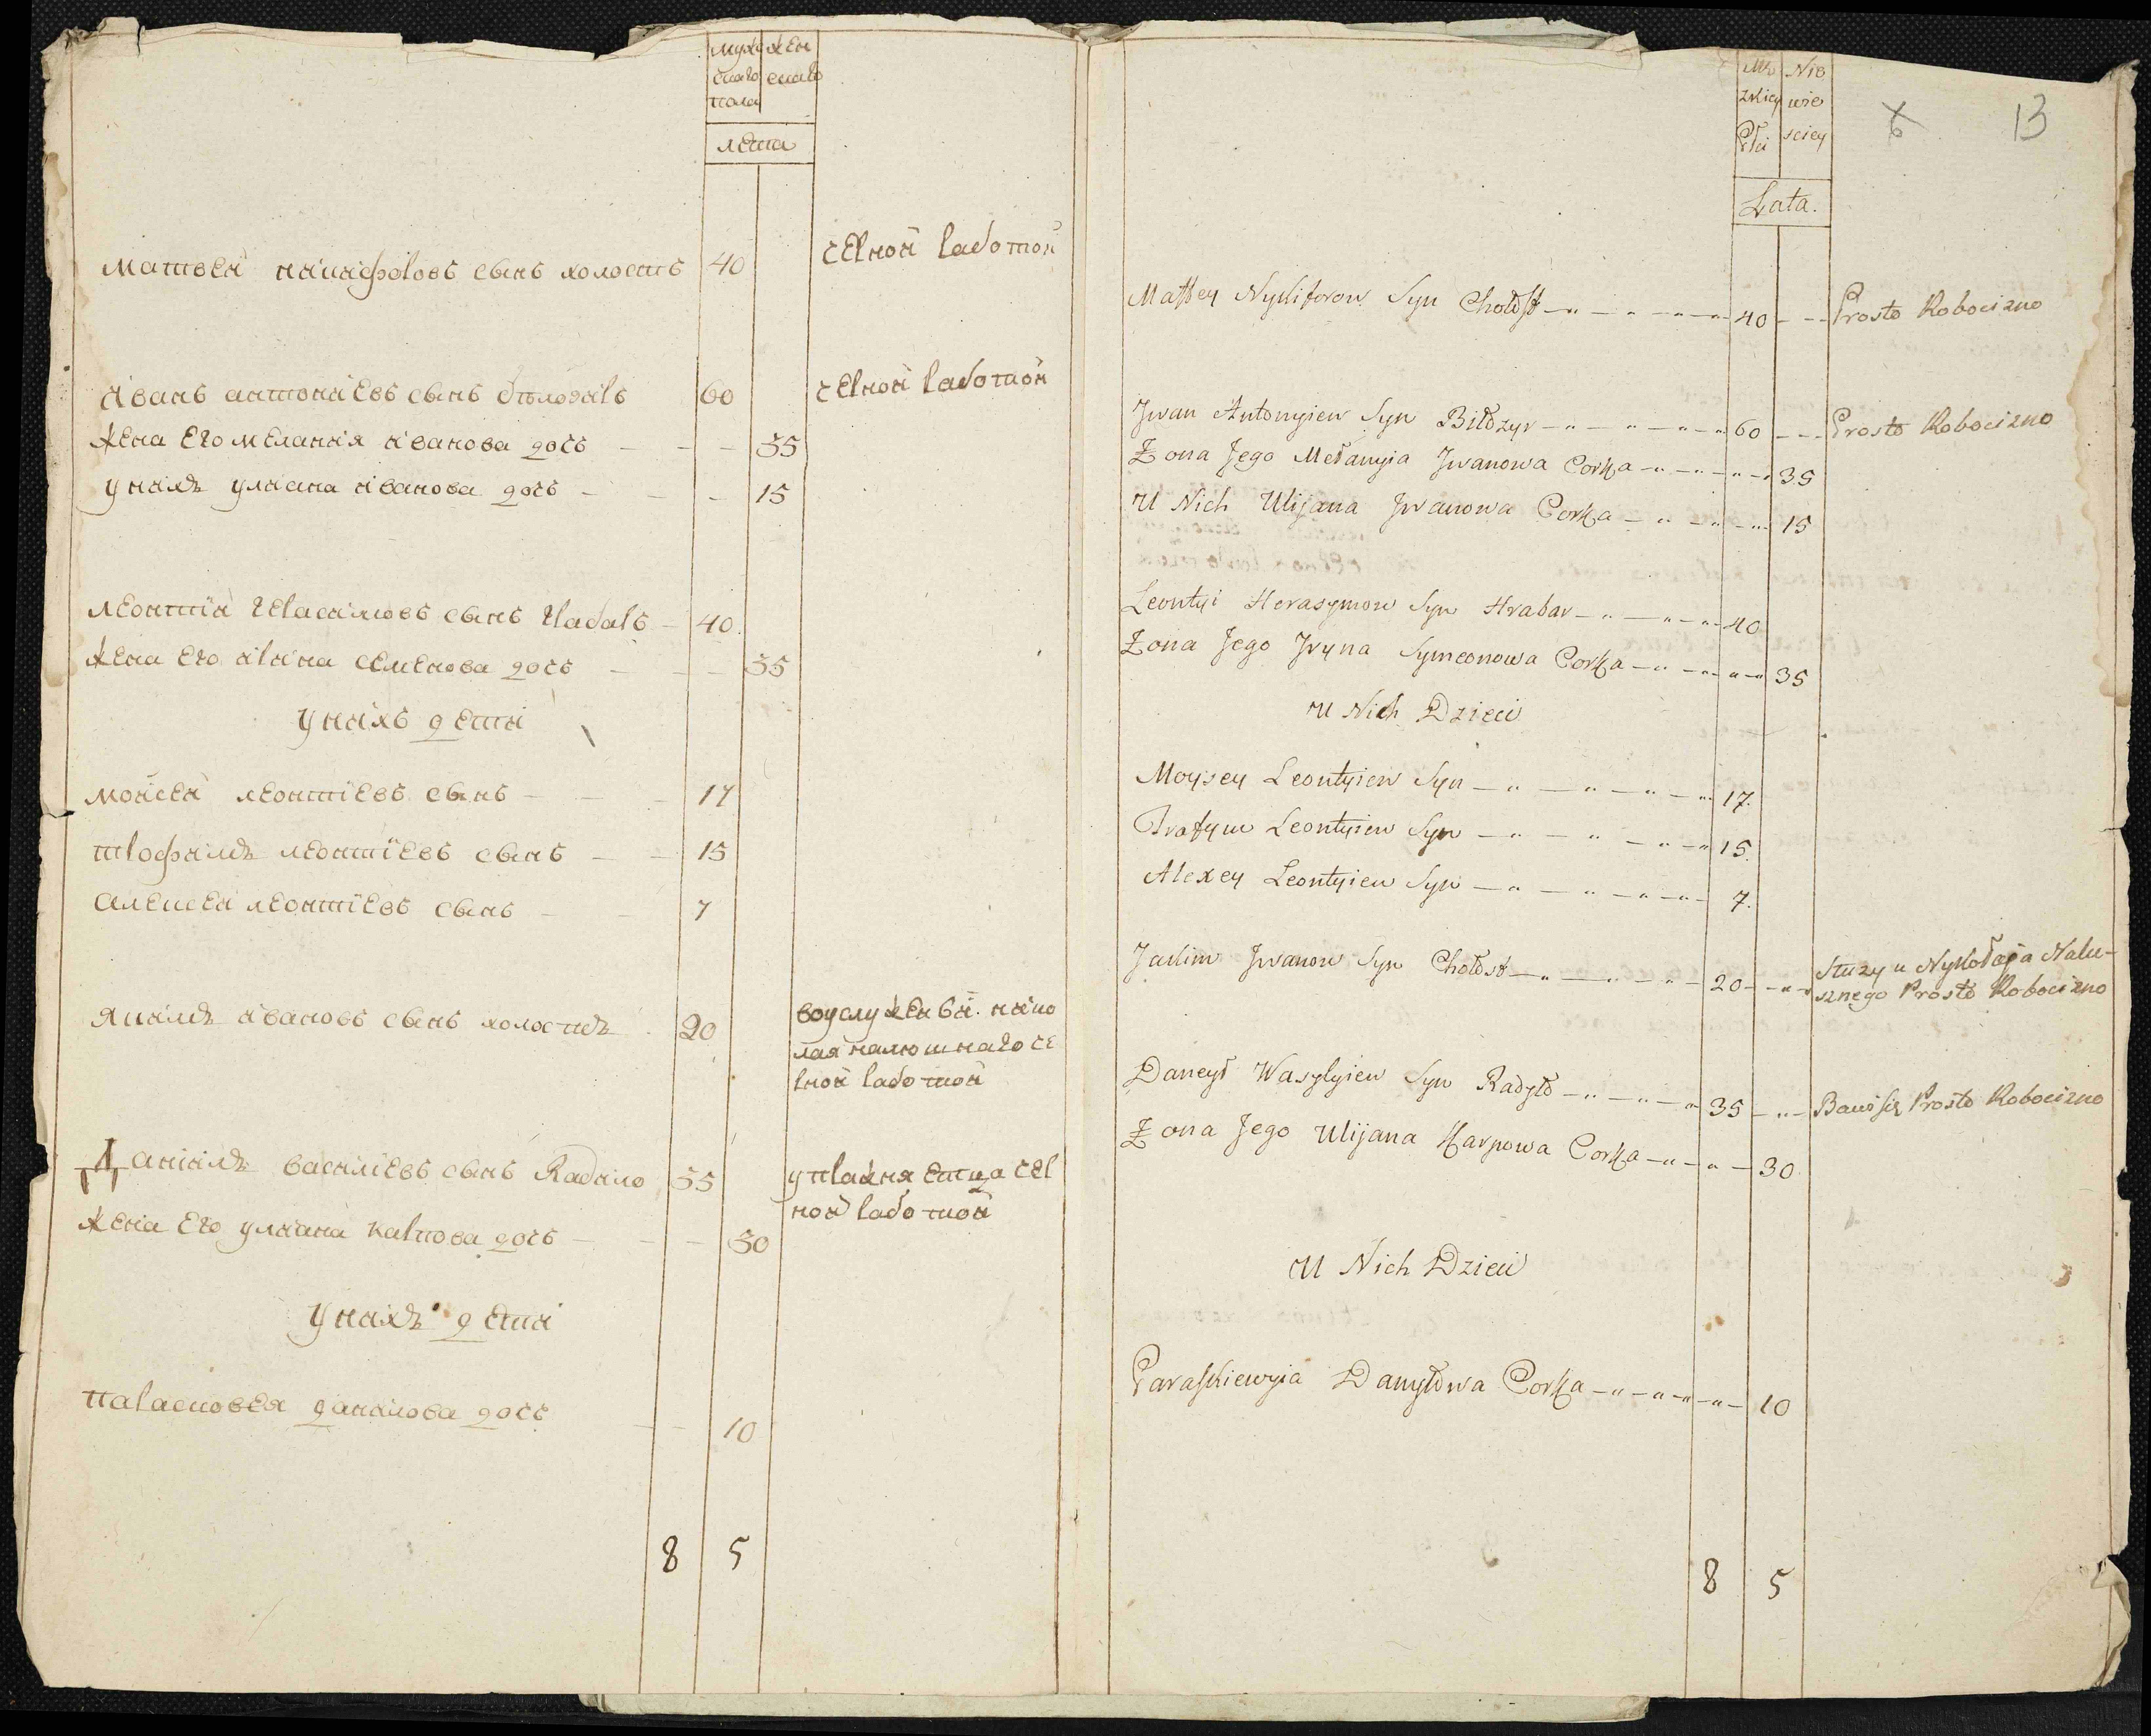 мужскаго пола
женскаго
лета
матвей никифоровъ сынъ холостъ 40 черной работой
иванъ антониевъ сынъ 60 черной работой
жена его мелания иванова дочь 35
у нихъ улиана иванова дочь 15
леонтий герасимовъ сынъ грабаръ 40
жена его ирина семенова дочь 35
у нихъ дети
мойсей леонтіевъ сынъ 17
трофимъ леонтіевъ сынъ 15
алексей леонтіевъ сынъ 7
якимъ ивановъ сынъ холостъ 20 воуслужении нико
лая налюшнаго че
рной работой
даніилъ василіевъ сынъ Радило 35 упражняетца чер
ной работой
жена его улиана карпова дочь 30
у нихъ дети
парасковея данилова дочь 10
8 5
13
Męzkiey Płci
Niewiesciey
Lata.
Mattey Nykiforow Syn Chołost 40 Prosto Robocizno
Jwan Antonyiew Syn Biłozyr 60 Prosto Robocizno
Żona Jego Mełanyia Jwanowa Corka 35
U Nich Ulijana Jwanowa Corka 15
Leontyi Herasymow Syn Hrabar 40
Żona Jego Jryna Symeonowa Corka 35
U Nich Dzieci
Moysey Leontyiew Syn 17.
Trofym Leontyiew Syn 15.
Alexey Leontyiew Syn 7.
Jackim Jwanow Syn Chołost 20 Służy u Nykołaja Nalu-
sznego Prosto Robocizno
Daneył Wasylyiew Syn Radyło 35 Bawi się Prosto Robocizno
Żona Jego Ulijana Karpowa Corka 30
U Nich Dzieci
Paraskiewyia Danyłowa Corka 10
8 5